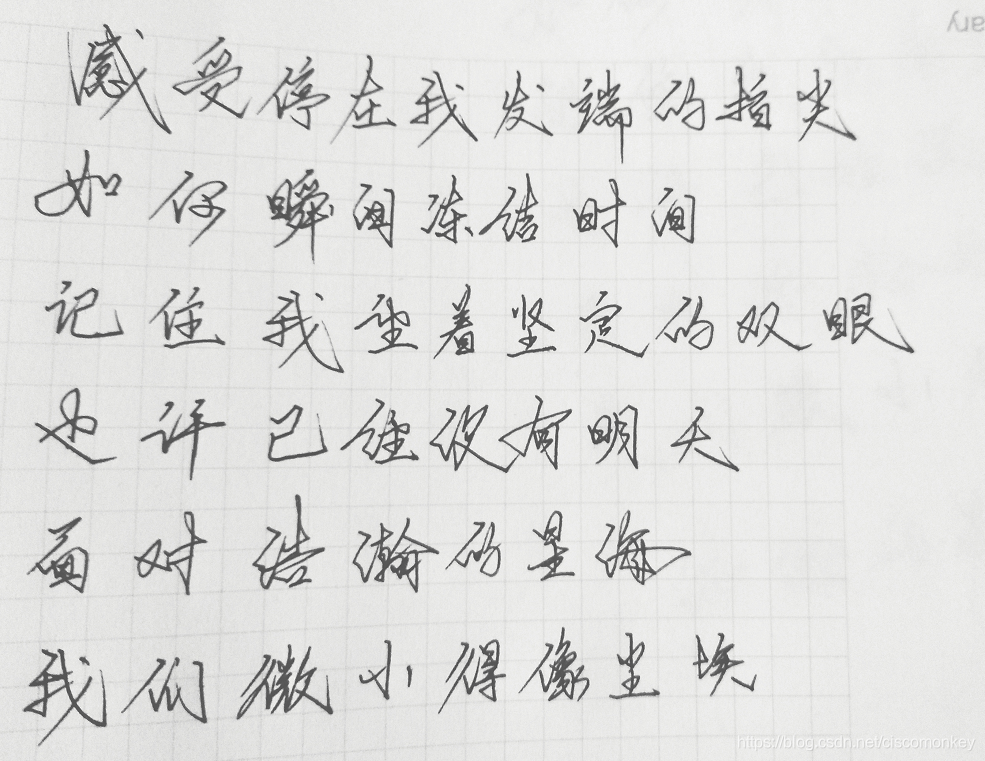 感受停在我发端的指尖
如何瞬间冻结时间
记住我望着坚定的双眼
也许已经没有明天
面对浩瀚的星海
我们微小得像尘埃
https://blog.csdn.net/ciscomonkey